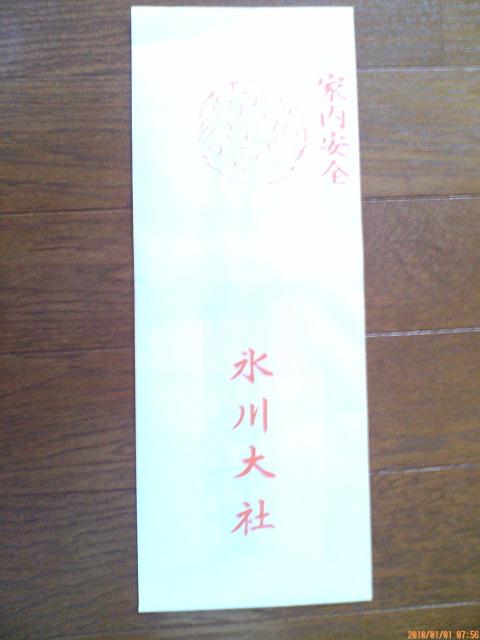 家内安全
氷川大社
2010/01/01 07:56